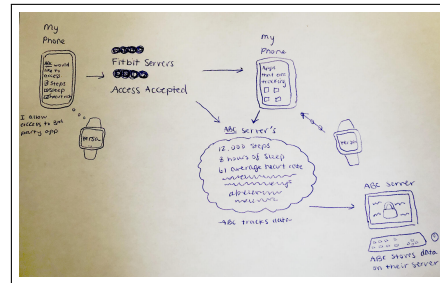 My
Phone
ABC would
like to
access
Steps
Sleep
I allow
access to 3rd
party app
Fitbit Servers
Access Accepted
My
Phone
Apps
that are
tracking
ABC Server's
12,000 Steps
8 hours of Sleep
61 average heart rate
ABC tracks data
ABC Server
ABC Stores data
on their server